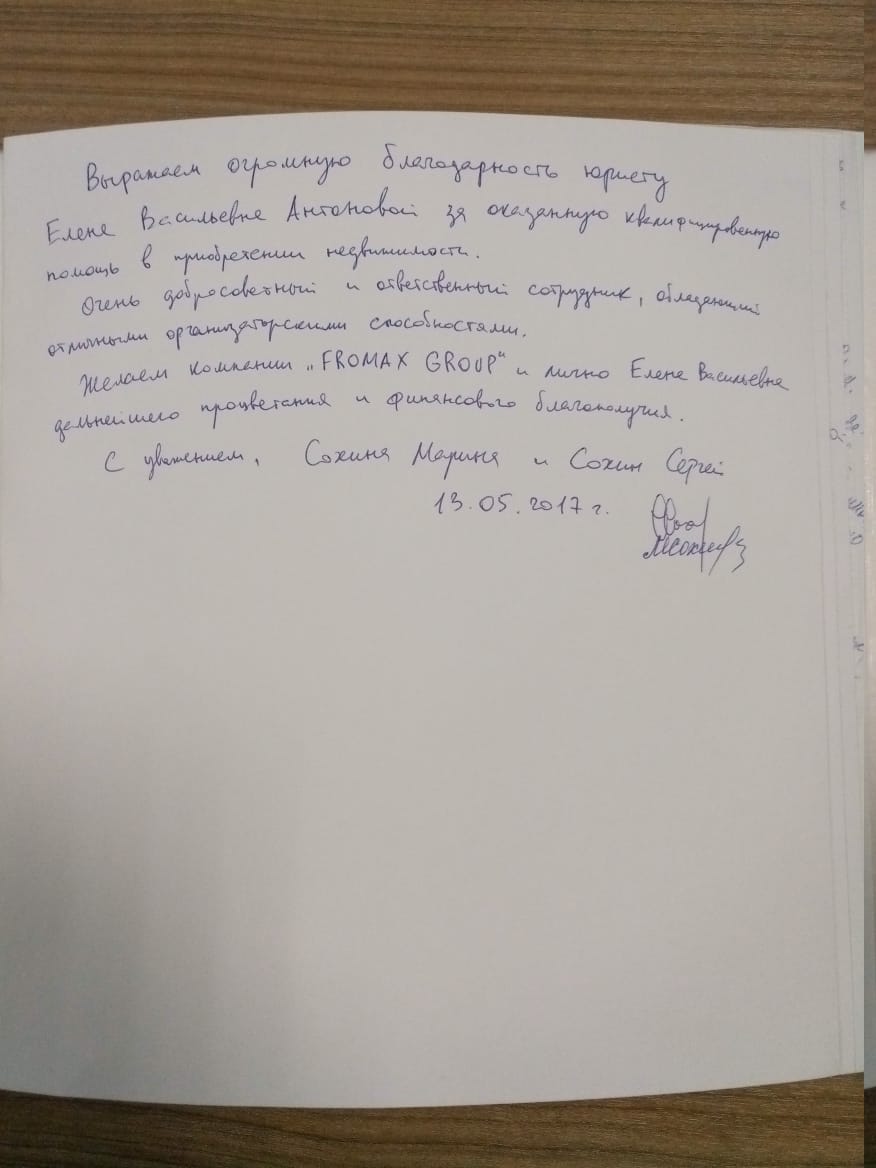 Выражаем огромную благодарность юристу
Елене Васильевне Антоновой за оказанную квалифицированную
помощь в приобретении недвижимости.
Очень добросовестный и ответственный сотрудник, обладающий
отличными организаторскими способностями.
Желаем компании „FROMAX GROUP“ и лично Елене Васильевне
дальнейшего процветания и финансового благополучия.
С уважением, Сохина Марина и Сохин Сергей
13.05.2017 г.